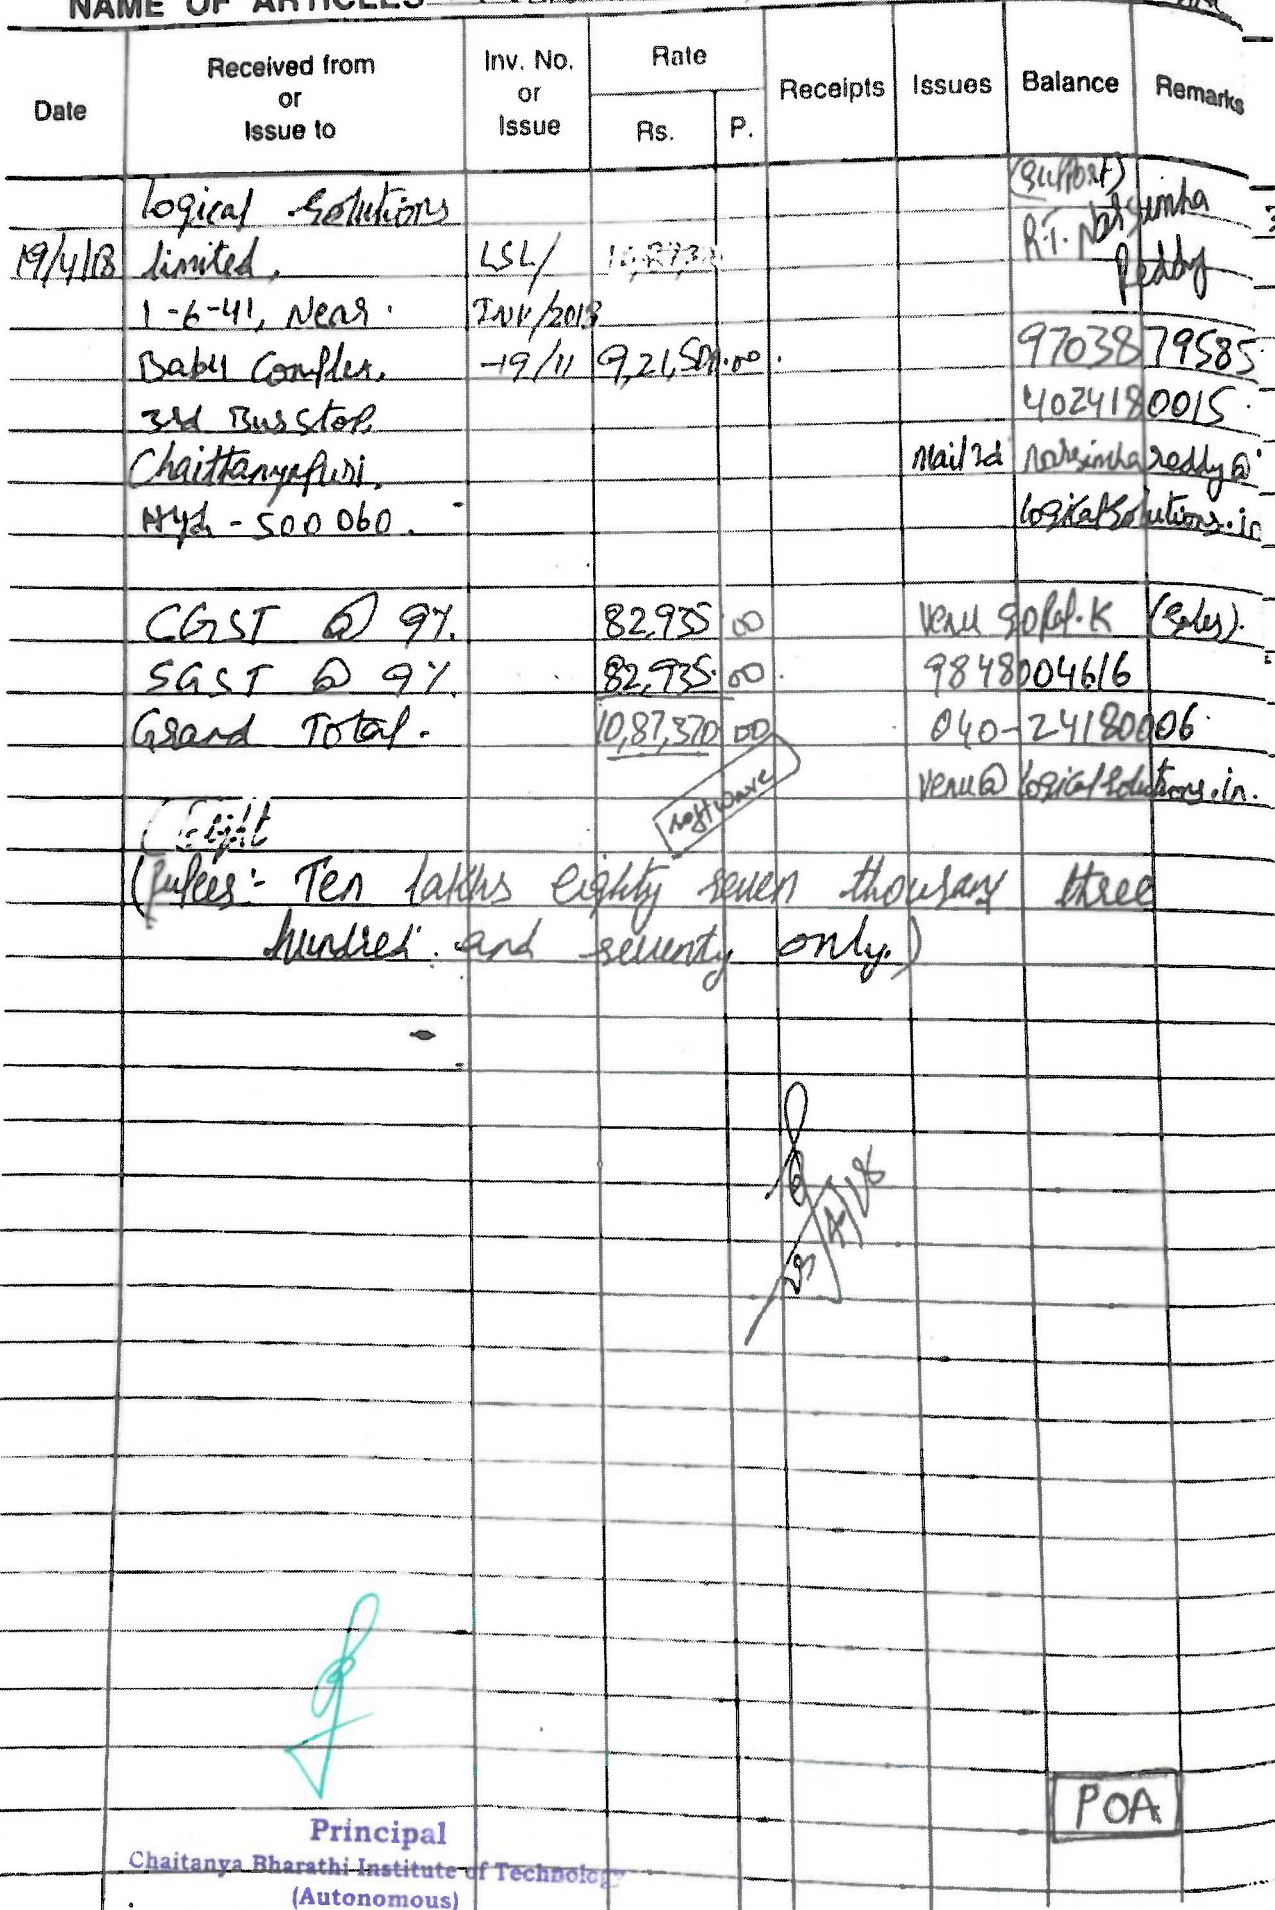 NAME OF ARTICLES
Date
Received from
or
Issue to
Inv. No.
or
Issue
Rate
Rs.
P.
Receipts
Issues
Balance
Remarks
(Support)
Logical Solutions
R.T. Narsimha
19/4/18 limited, LSL/
Reddy
1-6-41, Near. INV/2018
Babu Complex, -19/11 9,21,500.00
97038 79585
3rd Bus Stop,
402418 0015
Chaittanyapuri,
Mail Id narsimhareddy@
Hyd - 500 060.
logicalsolutions.in
CGST @ 9%. 82,935 00 Venu Gopal.K (Sales).
SGST @ 9%. 82,935 00 9848004616
Grand Total. 10,87,370 00 040-24180006
software
venu@logicalsolutions.in.
Eight
(Rupees:- Ten lakhs eighty seven thousand three
hundred and seventy only.)
23/4/18
POA
Principal
Chaitanya Bharathi Institute of Technology
(Autonomous)